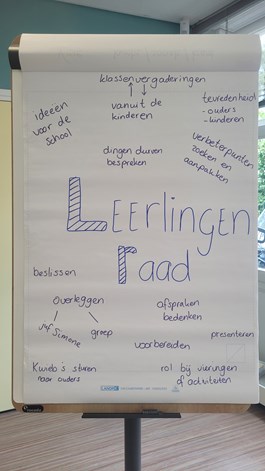 klassenvergaderingen
ideeën
voor de
school
vanuit de
kinderen
tevredenheid
- ouders
- kinderen
dingen durven
bespreken
verbeterpunten
zoeken en
aanpakken
LEERlingen
raad
beslissen
overleggen
juf Simone
groep
afspraken
bedenken
voorbereiden
presenteren
Kwido's sturen
naar ouders
rol bij vieringen
of activiteiten